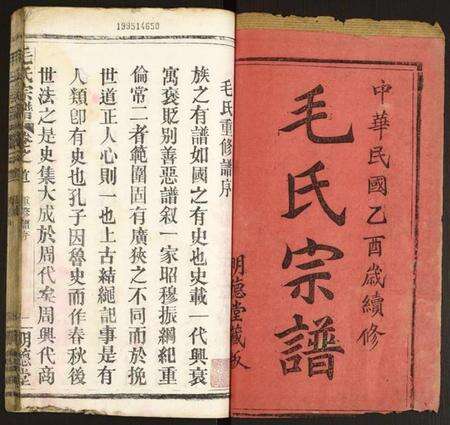 中華民國乙酉歲續修
毛氏宗譜
明德堂藏板
199514650
毛氏重修譜序
族之有譜如國之有史也史載一代興衰
寓褒貶別善惡譜叙一家昭穆振綱紀重
倫常二者範圍固有廣狹之不同而於挽
世道正人心則一也上古結繩記事是有
人類卽有史也孔子因魯史而作春秋後
世法之是史集大成於周代案周興代商
毛氏宗譜 卷之首 重修譜序 一 明德堂